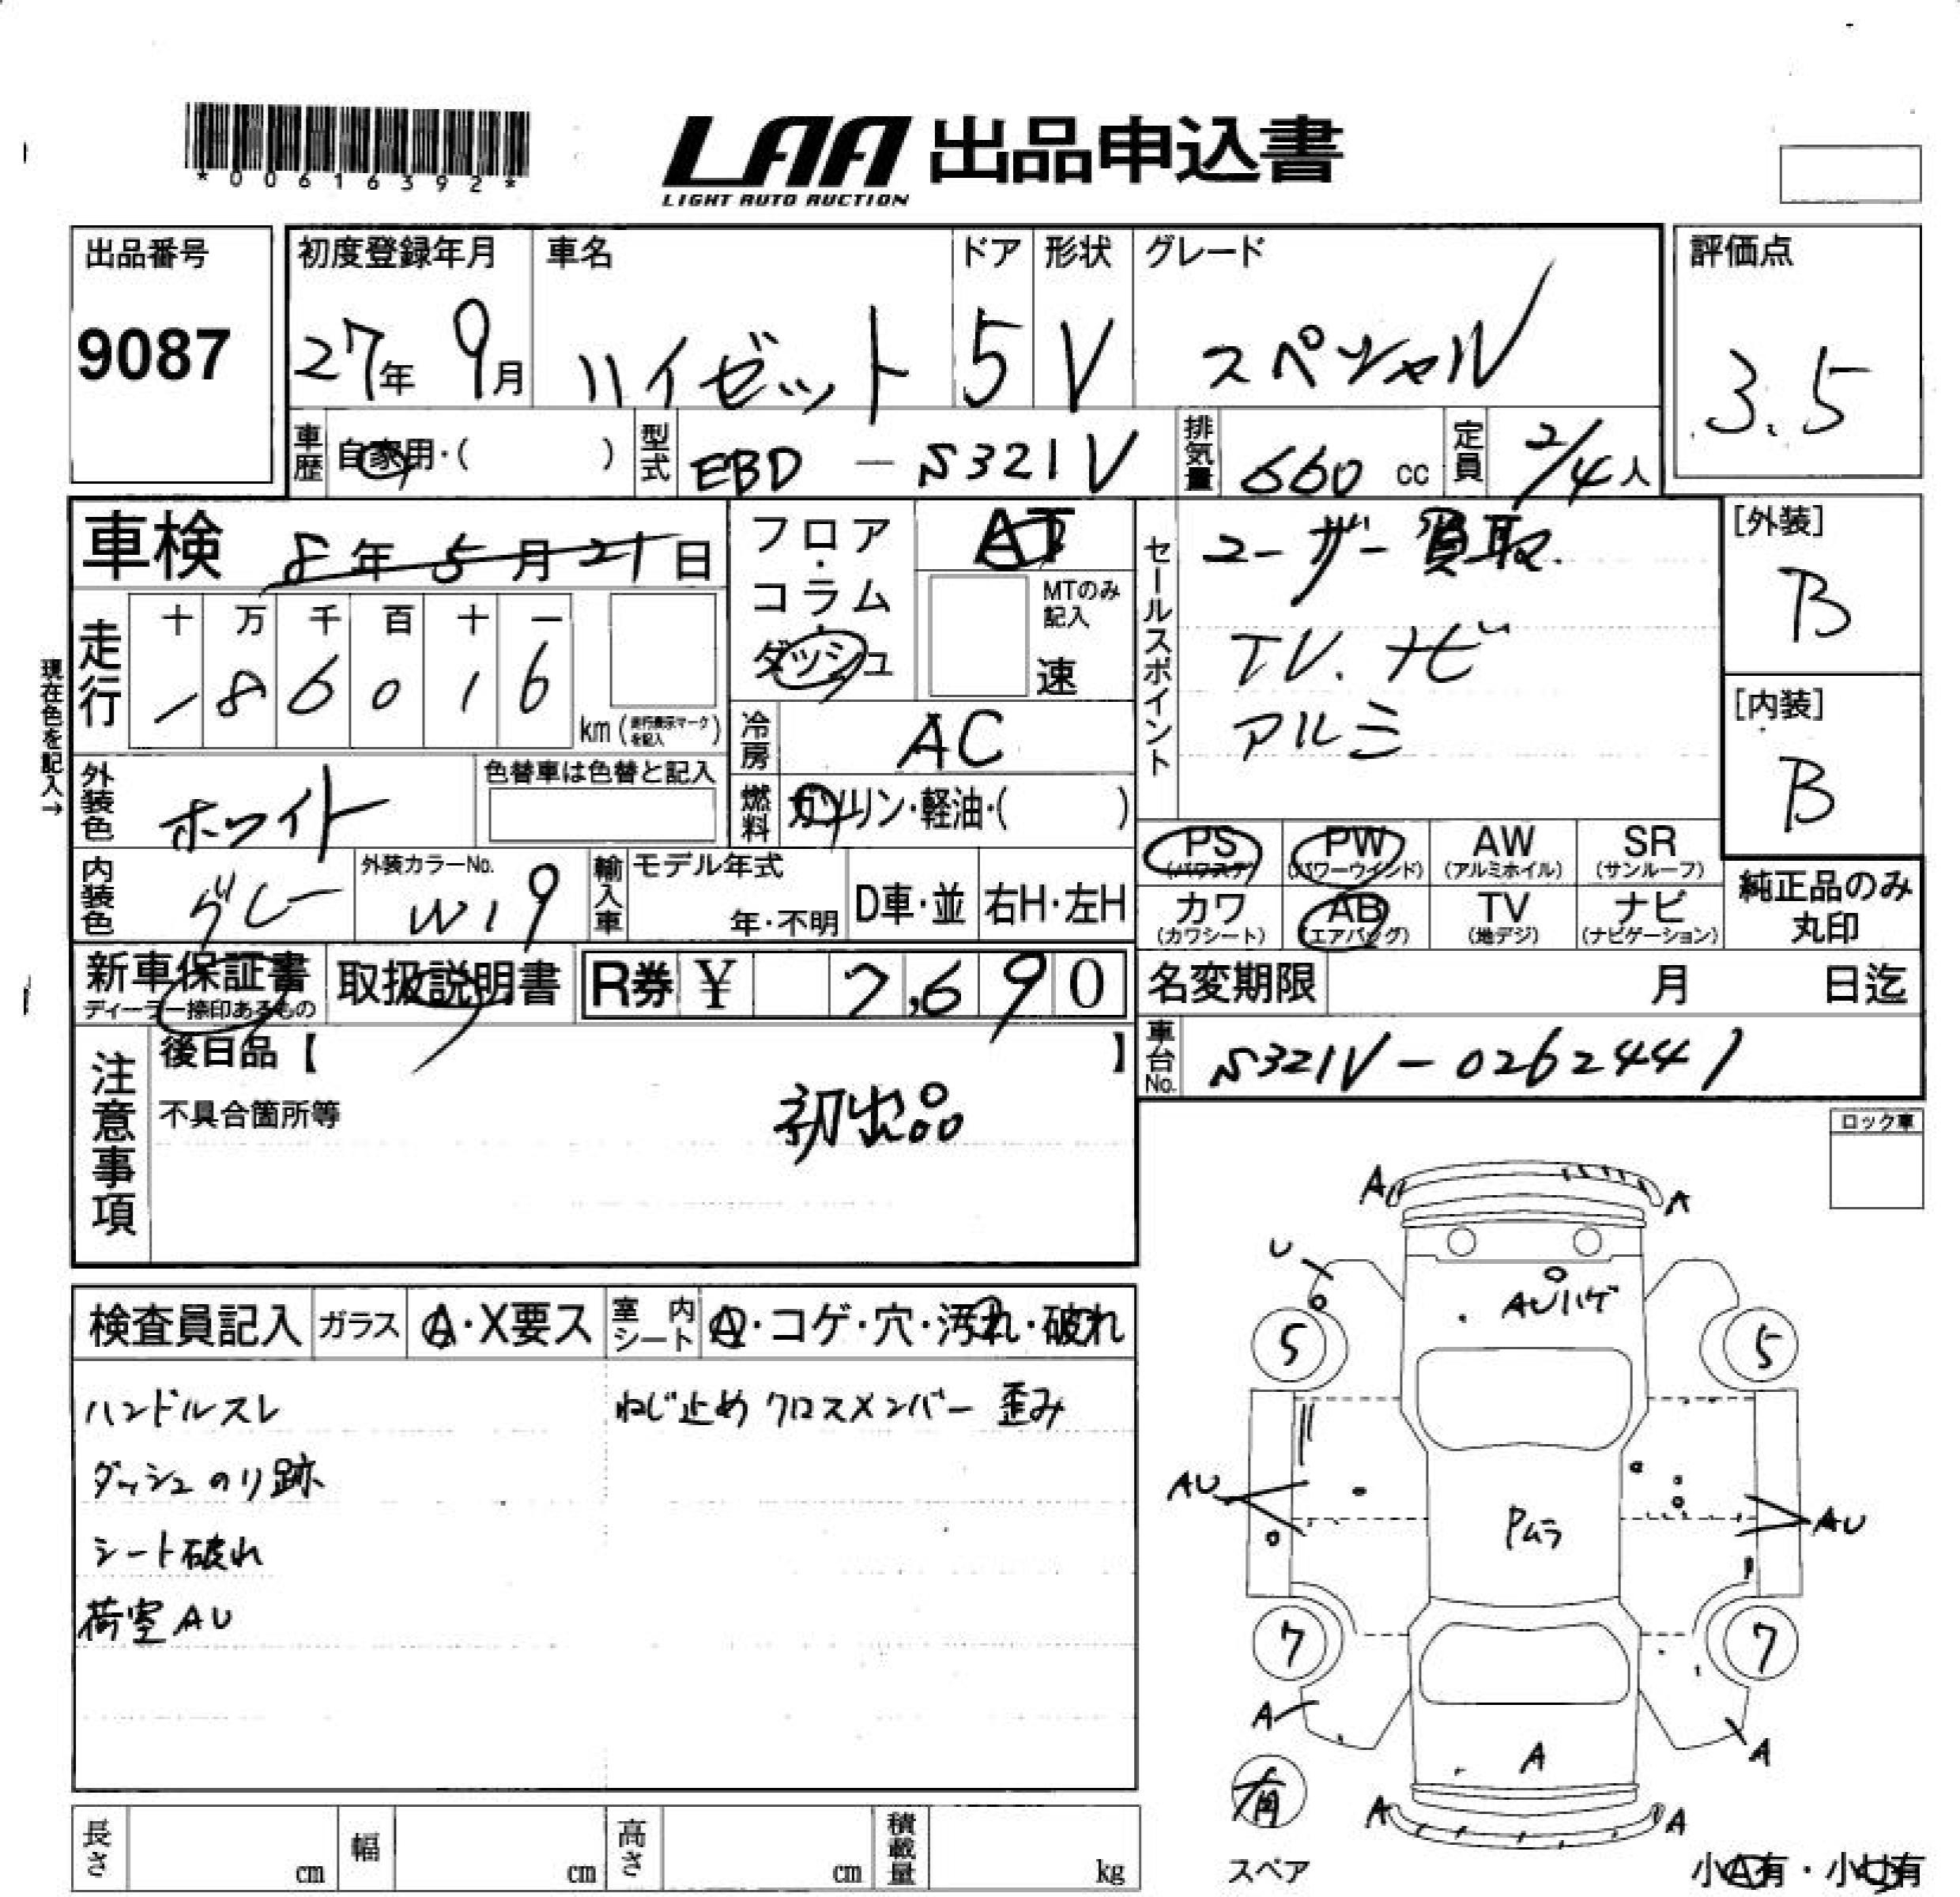 *00616392*
LAA 出品申込書
LIGHT AUTO AUCTION
出品番号 初度登録年月 車名 ドア 形状 グレード 評価点
9087 27年 9月 ハイゼット 5 V スペシャル 3.5
車歴 自家用・( ) 型式 EBD - S321V 排気量 660 cc 定員 2/4人
車検 8年 5月 21日
フロア・コラム・ダッシュ AT
MTのみ記入
速
セールスポイント
ユーザー買取.
TV. ナビ
アルミ
[外装]
B
[内装]
B
現在色を記入→
走行 十 万 千 百 十 一
1 8 6 0 1 6 km (走行表示マークを記入)
冷房 AC
外装色 ホワイト 色替車は色替と記入
燃料 ガソリン・軽油・( )
PS (パワステ) PW (パワーウインド) AW (アルミホイル) SR (サンルーフ)
内装色 グレー 外装カラーNo. W19 輸入車 モデル年式 年・不明 D車・並 右H・左H
カワ (カワシート) AB (エアバッグ) TV (地デジ) ナビ (ナビゲーション)
純正品のみ丸印
新車保証書 ディーラー捺印あるもの 取扱説明書 R券 ¥ 7,690
名変期限 月 日迄
注意事項 後日品【 】
車台No. S321V-0262441
不具合箇所等
初出品
ロック車
検査員記入 ガラス A・X要ス 室内シート A・コゲ・穴・汚れ・破れ
ハンドルスレ ねじ止めクロスメンバー 歪み
ダッシュのり跡
シート破れ
荷室AU
A A
U
AUハゲ
5 5
AU AU
Pムラ
7 7
A A
A
有
A A
スペア
小A有・小U有
長さ cm 幅 cm 高さ cm 積載量 kg